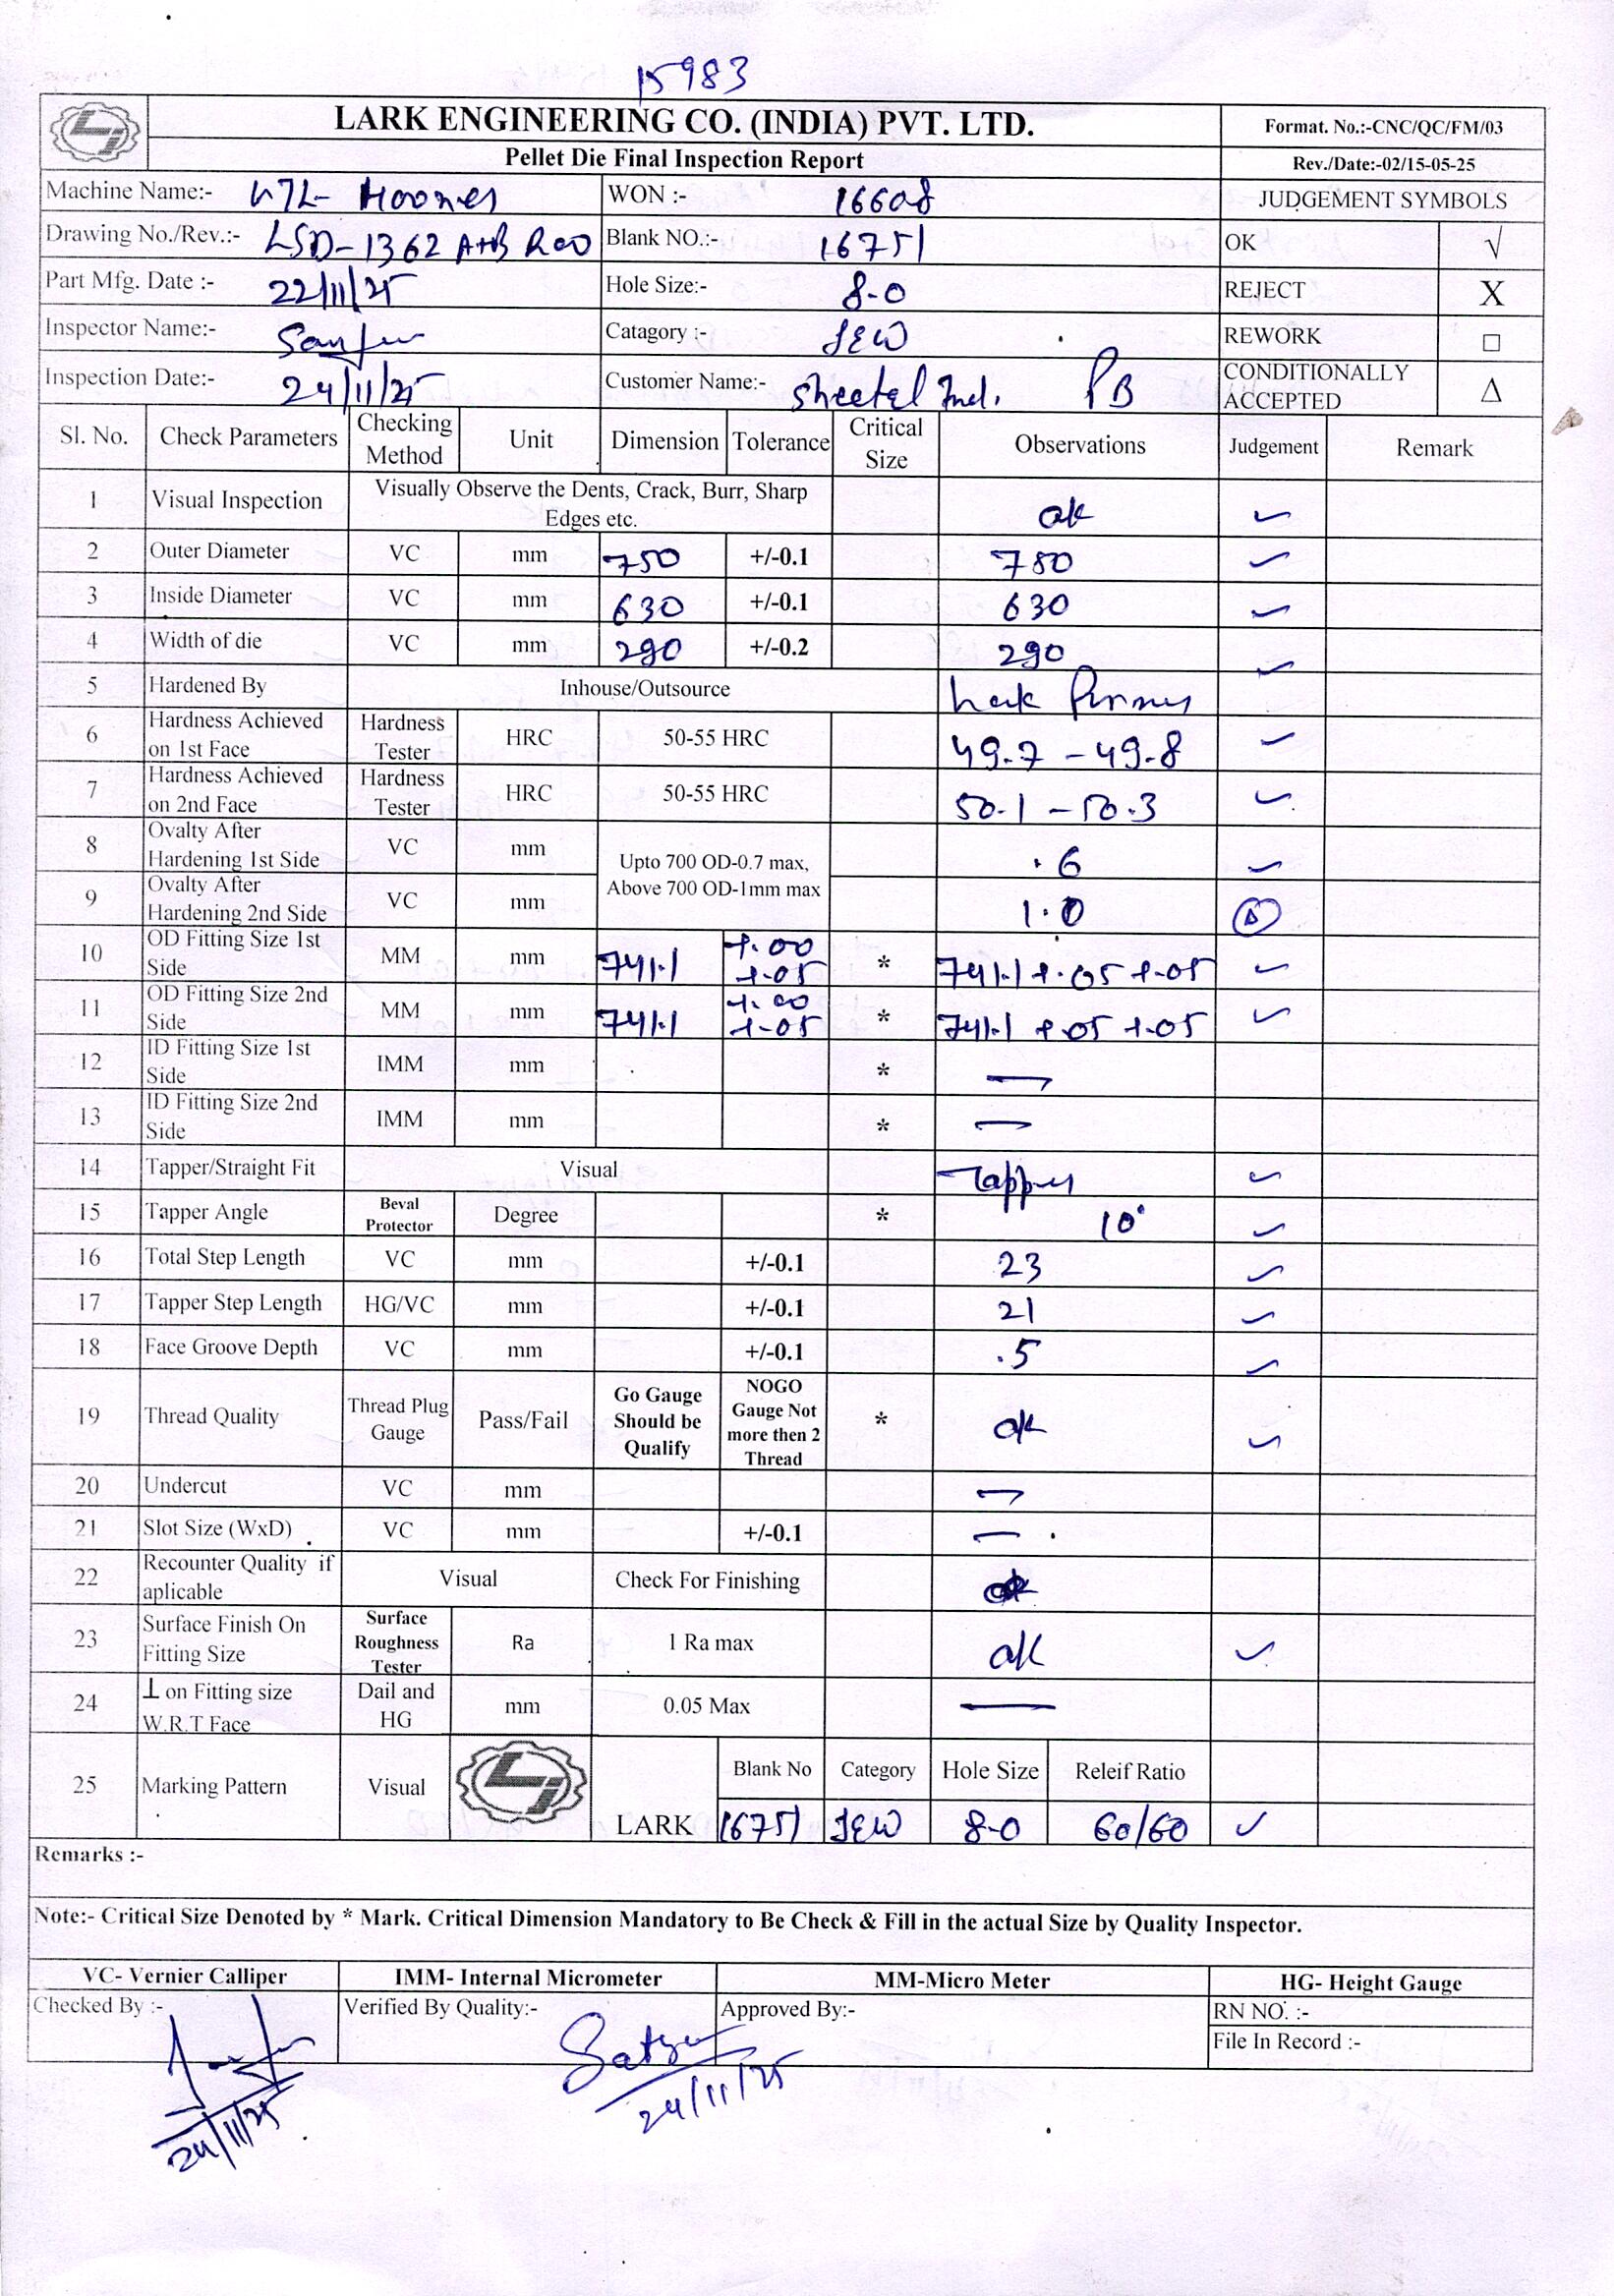 15983
LARK ENGINEERING CO. (INDIA) PVT. LTD. Format. No.:-CNC/QC/FM/03
Pellet Die Final Inspection Report Rev./Date:-02/15-05-25
Machine Name:- WON :- 16608 JUDGEMENT SYMBOLS
Drawing No./Rev.:- LSD-1362 A+B R00 Blank NO.:- 16751 OK √
Part Mfg. Date :- 22/11/25 Hole Size:- 8.0 REJECT X
Inspector Name:- Catagory :- REWORK □
Inspection Date:- 24/11/25 Customer Name:- Sheetal Ind. PB CONDITIONALLY ACCEPTED Δ
Sl. No. Check Parameters Checking Method Unit Dimension Tolerance Critical Size Observations Judgement Remark
1 Visual Inspection Visually Observe the Dents, Crack, Burr, Sharp Edges etc. ok ✓
2 Outer Diameter VC mm 750 +/-0.1 750 ✓
3 Inside Diameter VC mm 630 +/-0.1 630 ✓
4 Width of die VC mm 290 +/-0.2 290 ✓
5 Hardened By Inhouse/Outsource Lark
6 Hardness Achieved on 1st Face Hardness Tester HRC 50-55 HRC 49.7 - 49.8 ✓
7 Hardness Achieved on 2nd Face Hardness Tester HRC 50-55 HRC 50.1 - 50.3 ✓
8 Ovalty After Hardening 1st Side VC mm Upto 700 OD-0.7 max, Above 700 OD-1mm max .6 ✓
9 Ovalty After Hardening 2nd Side VC mm 1.0 Δ
10 OD Fitting Size 1st Side MM mm 741.1 +.00 +.05 * 741.1 +.05 +.05 ✓
11 OD Fitting Size 2nd Side MM mm 741.1 +.00 +.05 * 741.1 +.05 +.05 ✓
12 ID Fitting Size 1st Side IMM mm * —
13 ID Fitting Size 2nd Side IMM mm * —
14 Tapper/Straight Fit Visual Tapper ✓
15 Tapper Angle Beval Protector Degree * 10° ✓
16 Total Step Length VC mm +/-0.1 23 ✓
17 Tapper Step Length HG/VC mm +/-0.1 21 ✓
18 Face Groove Depth VC mm +/-0.1 .5 ✓
19 Thread Quality Thread Plug Gauge Pass/Fail Go Gauge Should be Qualify NOGO Gauge Not more then 2 Thread * ok ✓
20 Undercut VC mm —
21 Slot Size (WxD) VC mm +/-0.1 —
22 Recounter Quality if aplicable Visual Check For Finishing ok
23 Surface Finish On Fitting Size Surface Roughness Tester Ra 1 Ra max ok ✓
24 ⊥ on Fitting size W.R.T Face Dail and HG mm 0.05 Max —
25 Marking Pattern Visual LARK Blank No Category Hole Size Releif Ratio
16751 8.0 60/60 ✓
Remarks :-
Note:- Critical Size Denoted by * Mark. Critical Dimension Mandatory to Be Check & Fill in the actual Size by Quality Inspector.
VC- Vernier Calliper IMM- Internal Micrometer MM-Micro Meter HG- Height Gauge
Checked By :- Verified By Quality:- Approved By:- RN NO. :-
File In Record :-
24/11/25 24/11/25